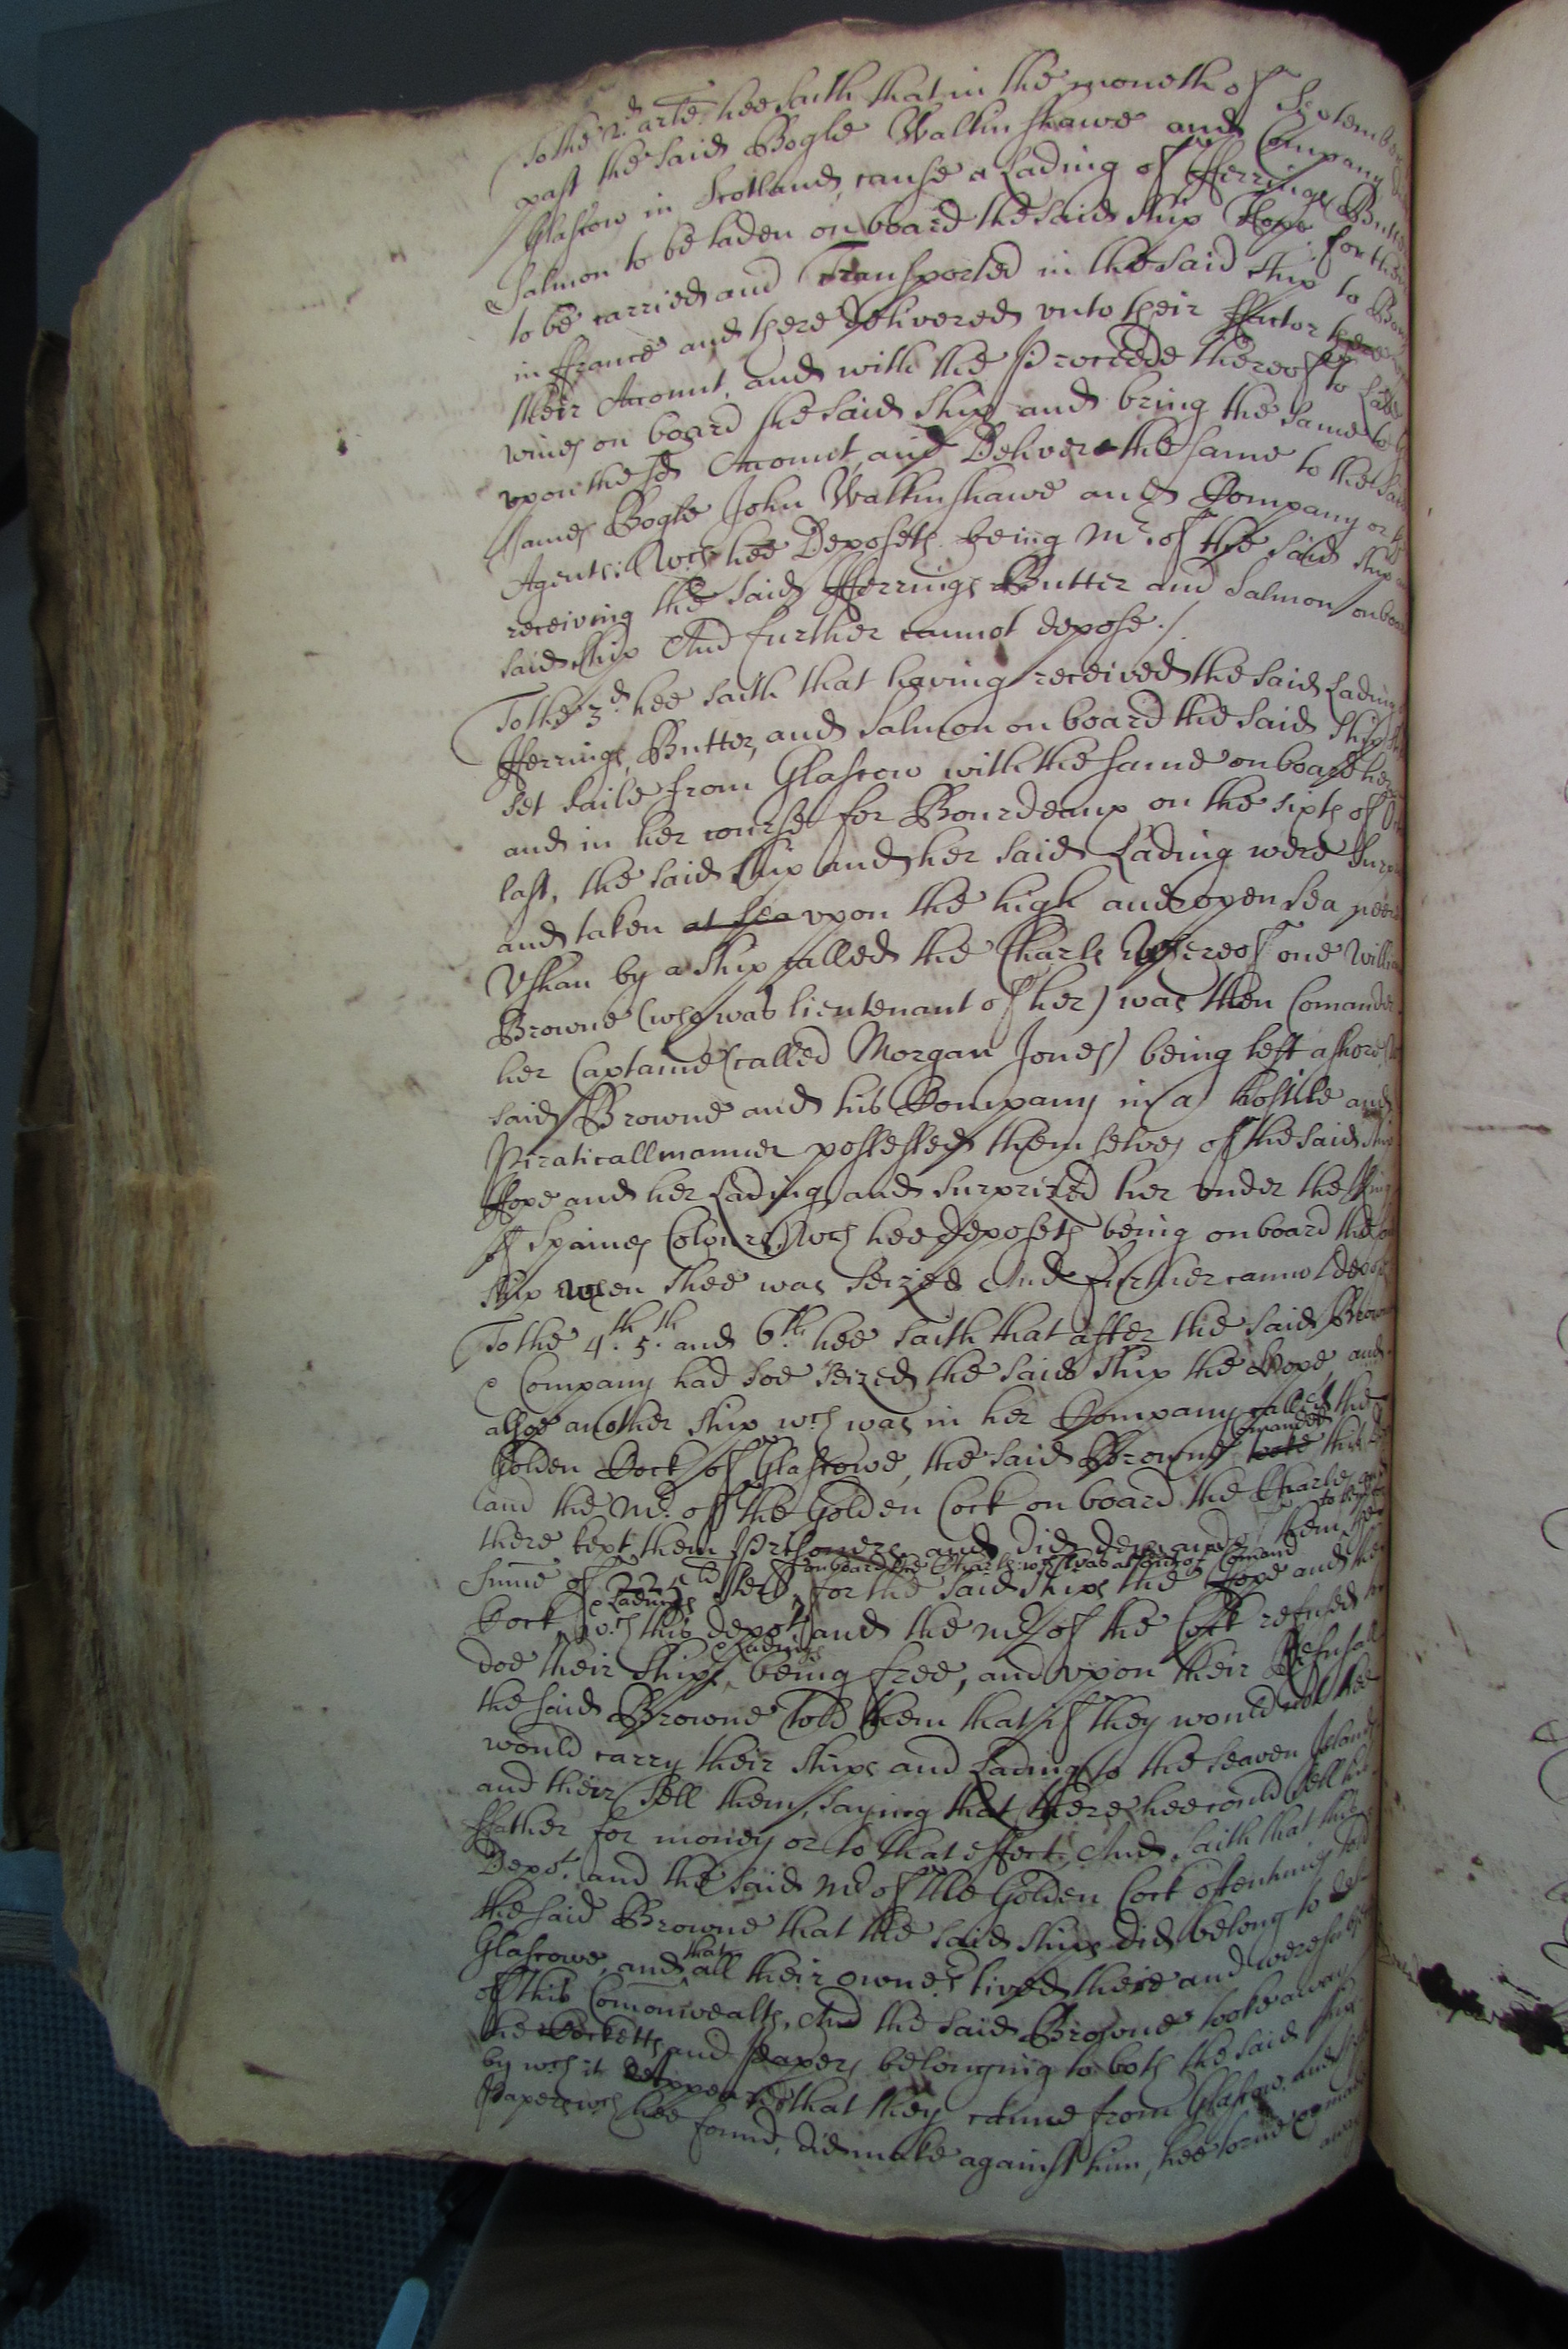 To the 2d. arte. hee saith that in the moneth of September
past the said Bogle Walkinshawe and Company
Glascow in Scotland, cause a Lading of Herrings Butter
Salmon to be laden on board the said ship Hope for their
to be carried and Transported in the said ship to
in ffrance and there delivered vnto their ffactor there
their Account, and with the Proceede thereof to Lade
wines on board the said ship and bring the same to
vpon the sd Account, and Deliver the same to the said
James Bogle John Walkinshawe and Company or
Agents: Wch hee Deposeth being Mr. of the said ship
receiving the said Herrings Butter and Salmon on board
said ship And further cannot depose./.
To the 3d. hee saith that having received the said Lading
Herrings, Butter, and Salmon on board the said ship
set saile from Glascow with the same on board her
and in her course for Bourdeaux on the sixth of
last, the said ship and her said Lading were
and taken at sea vpon the high and open sea neere
Vshan by a ship called the Charls Whereof one William
Browne (who was lieutenant of her) was then Comander
her Captaine (called Morgan Jones) being left ashore,
said Browne and his Company in a hostile and
Piraticall manner possessed themselves of the said ship
Hope and her Lading and surprized her vnder the King
of Spaines Colours, Wch hee deposeth being on board the
ship when shee was seized And further cannot depose
To the 4th. 5th. and 6th. hee saith that after the said Browne
& Company had soe seized the said ship the Hope, and
alsoe another ship wch was in her Company called the
Golden Cock of Glascowe, the said Browne Comanded tooke this
and the Mr. off the Golden Cock on board the Charles and
there kept them Prisoners and did demand of them the
on board the Charls wch was at his Comand
Summe of 225 ld sterl, for the said ships the Hope and the
Cock & Ladings, wch this depot. and the Mr. of the Cock refused to
doe their ships & Ladings, being free, and vpon their Refusall
the said Browne told them that if they would not hee
would carry their ships and Lading to the Seaven Islands
and their sell them, saying that there hee could sell his
ffather for money or to that effect, And saith that this
Depot. and the said Mr. of the Golden Cock oftentimes told
the said Browne that the said ships did belong to
Glascowe, and that all their owners lived there and were subjects
of this Comonwealth, And the said Browne tooke away
the Cocketts and Papers belonging to both the said ships
by wch it appeared that they came from Glascow, and
Papers wch hee found, did make against him, hee torne or made
away